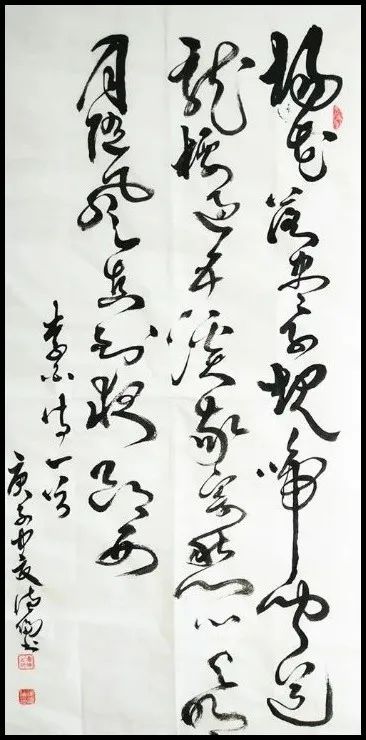 杨花落尽子规啼闻道
龍標过五溪我寄愁心与明
月随风直到夜郎西
李白诗一首
庚子中夏